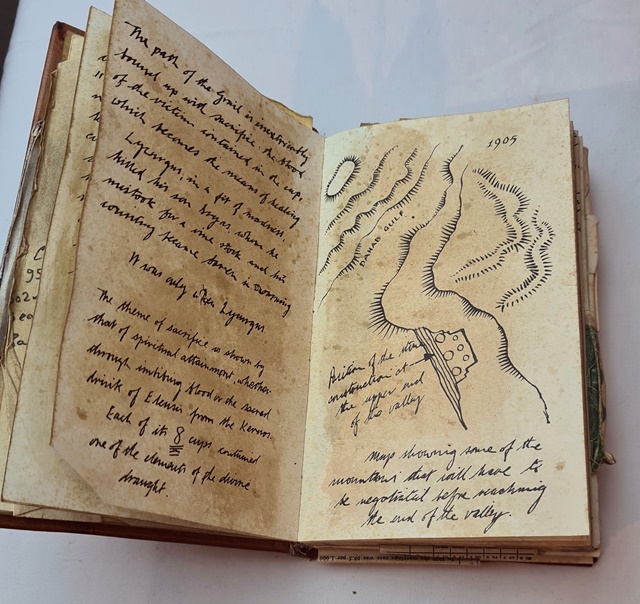 The path of the Grail is inextricably
bound up with sacrifice the blood
of the victim contained in the cup,
which becomes the means of healing
Lycurgus, in a fit of madness,
killed his son Dryas, when he
mistook for a vine stock and his
country became barren in
It was only when Lycurgus
The theme of sacrifice is shown by
that of spiritual attainment, whether
through imbibing blood or the sacred
drink of Eleusis from the Kernos.
Each of its 8 cups contained
one of the elements of the divine
draught.
1905
Position of the
construction at
the upper end
of the valley
Map showing some of the
mountains that will have to
be negotiated before reaching
the end of the valley.